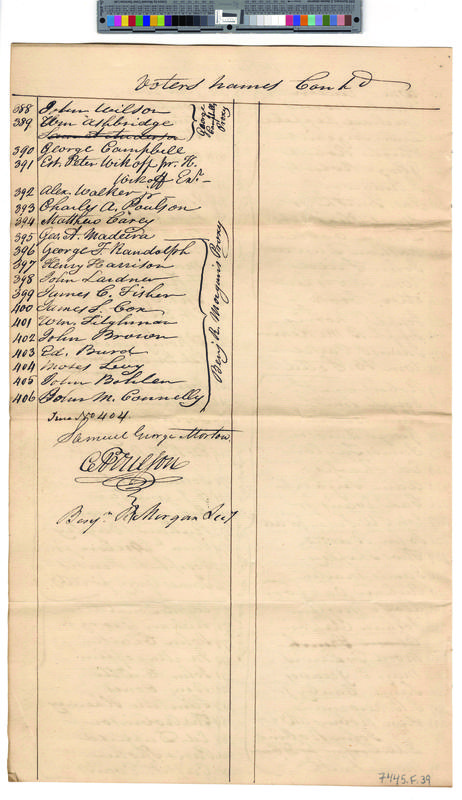 Voters names Cont.d
388 John Wilson
389 Wm Ashbridge
390 George Campbell
George Campbell's Proxy
391 Est. Peter Wikoff pr. H.
Wikoff Exr.
392 Alex. Walker
393 Charles A. Poulson
394 Matthew Carey
395 Geo. A. Madeira
396 George F. Randolph
397 Henry Harrison
398 John Lardner
399 James C. Fisher
400 James S. Cox
401 Wm. Tilghman
402 John Brown
403 Ed. Burd
404 Moses Levy
405 John Bohlen
406 John M. Connelly
Benj. R. Morgan's Proxy
404
Samuel George Morton
C A Poulson
Benjn. R. Morgan Secy
7445.F.39